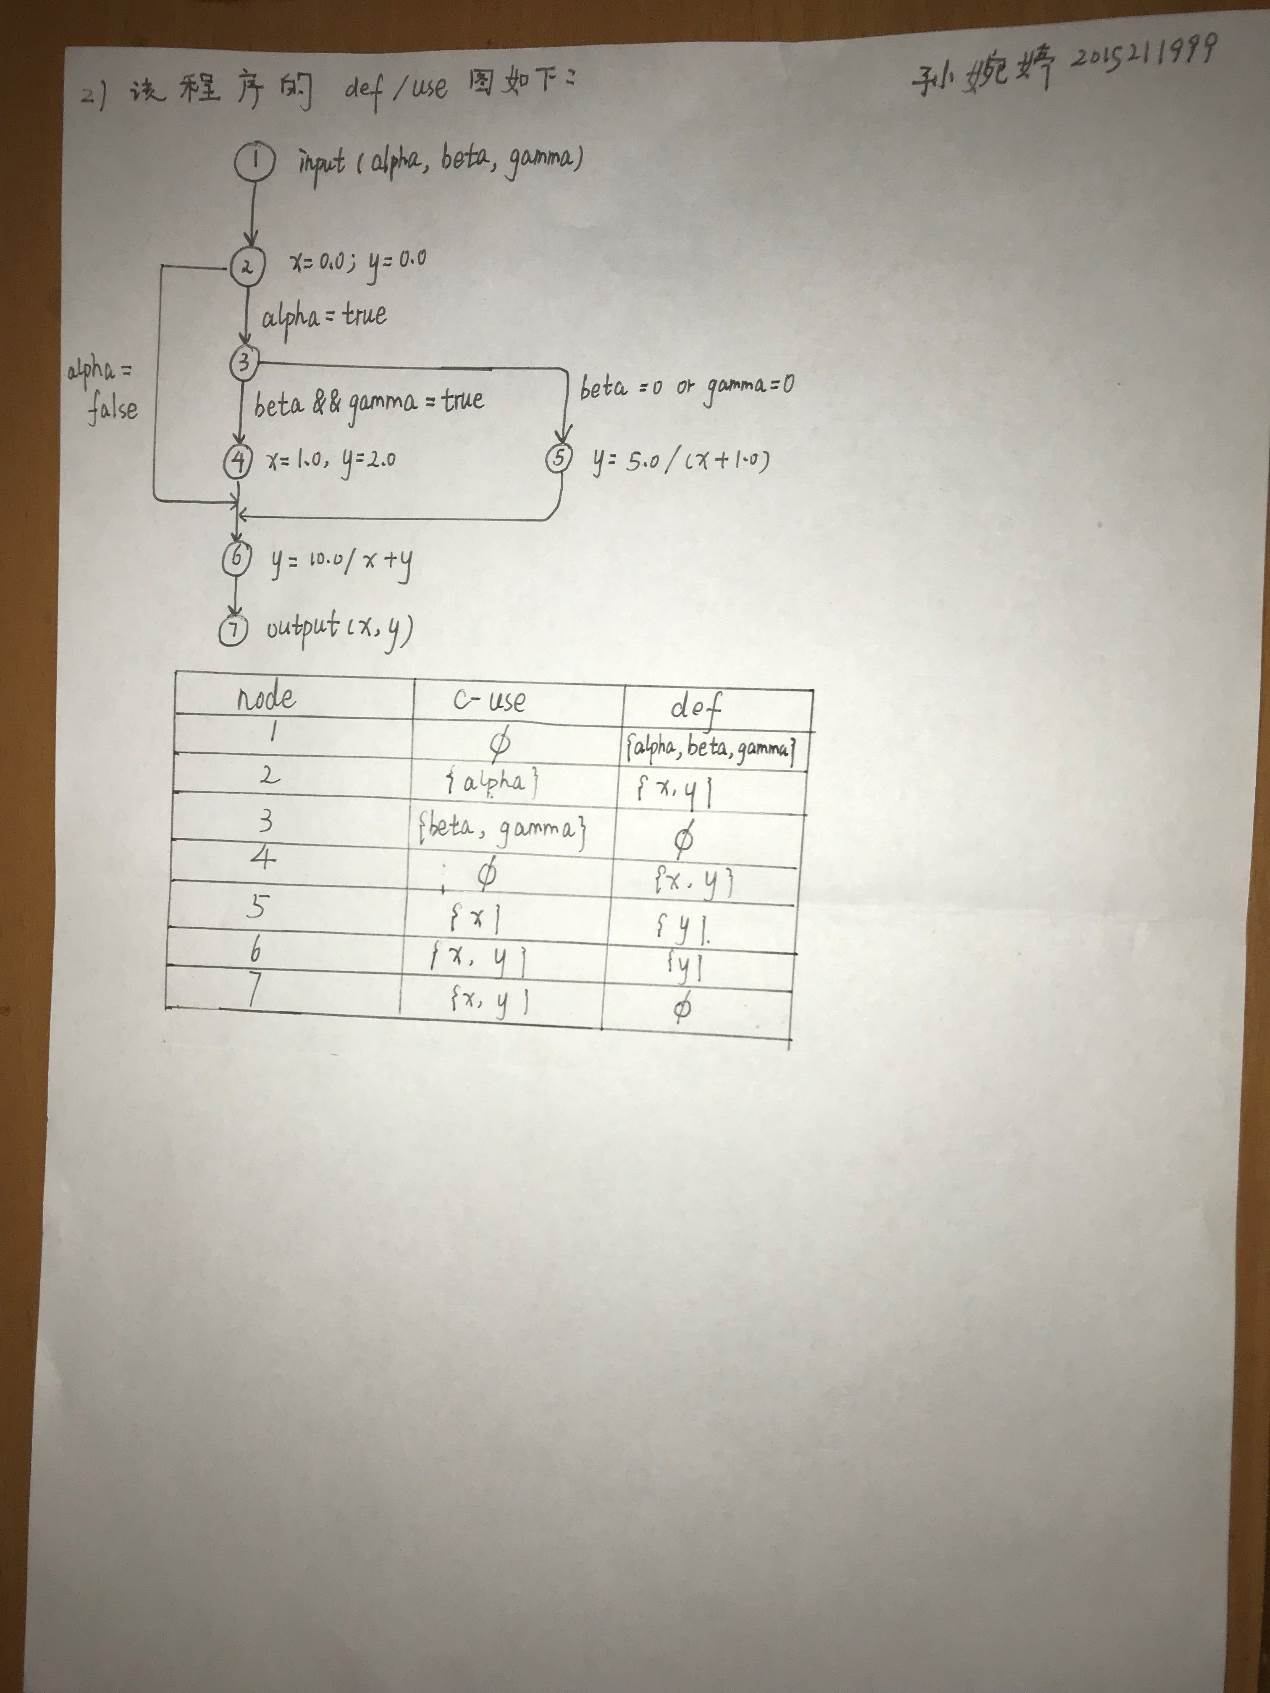 2) 该程序的 def/use 图如下:
孙婉婷 2015211999
1 input (alpha, beta, gamma)
2 x=0.0; y=0.0
alpha=true
alpha=
false
3
beta && gamma = true
beta =0 or gamma=0
4 x=1.0, y=2.0
5 y= 5.0/(x+1.0)
6 y= 10.0/x+y
7 output(x, y)
node c-use def
1 ϕ {alpha, beta, gamma}
2 {alpha} {x, y}
3 {beta, gamma} ϕ
4 ϕ {x, y}
5 {x} {y}
6 {x, y} {y}
7 {x, y} ϕ